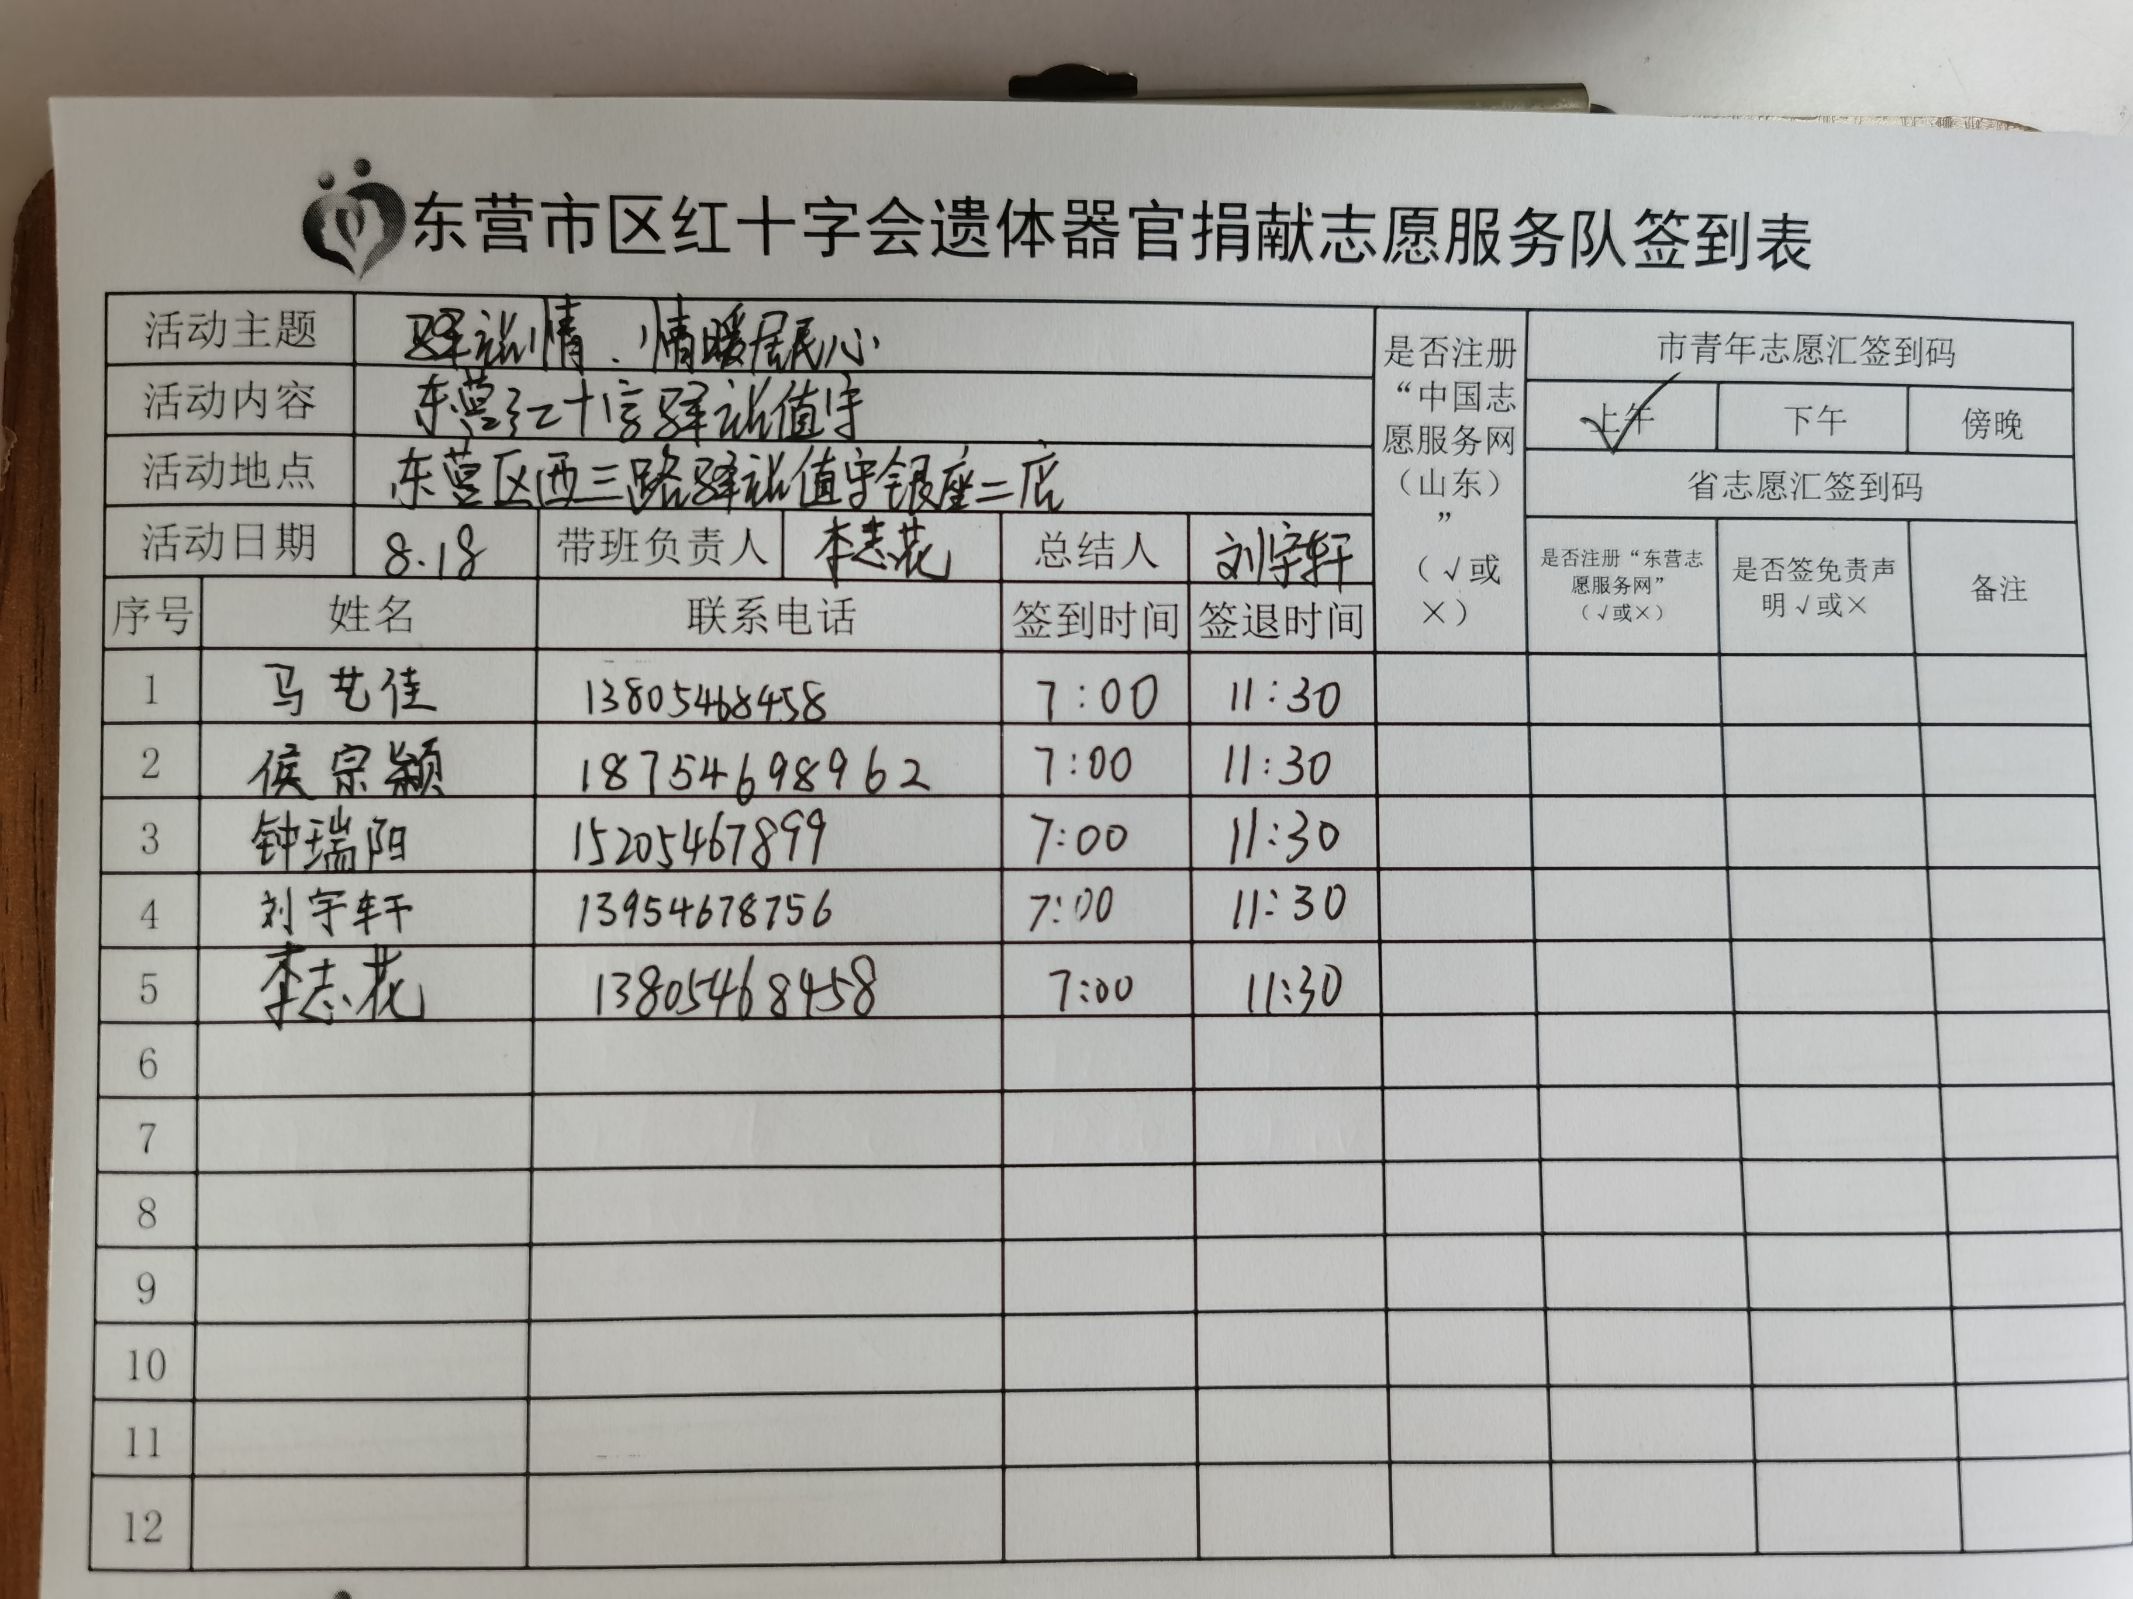 东营市区红十字会遗体器官捐献志愿服务队签到表
活动主题 驿站情、情暖居民心
活动内容 东营红十字驿站值守
活动地点 东营区西三路驿站值守银座二店
活动日期 8.18 带班负责人 李志花 总结人 刘宇轩
是否注册
“中国志
愿服务网
（山东）
”
（√或
×）
市青年志愿汇签到码
上午 下午 傍晚
省志愿汇签到码
是否注册“东营志
愿服务网”
（√或×）
是否签免责声
明√或×
备注
序号 姓名 联系电话 签到时间 签退时间
1 马艺佳 13805468458 7:00 11:30
2 侯宗颖 18754698962 7:00 11:30
3 钟瑞阳 15205467899 7:00 11:30
4 刘宇轩 13954678756 7:00 11:30
5 李志花 13805468458 7:00 11:30
6
7
8
9
10
11
12